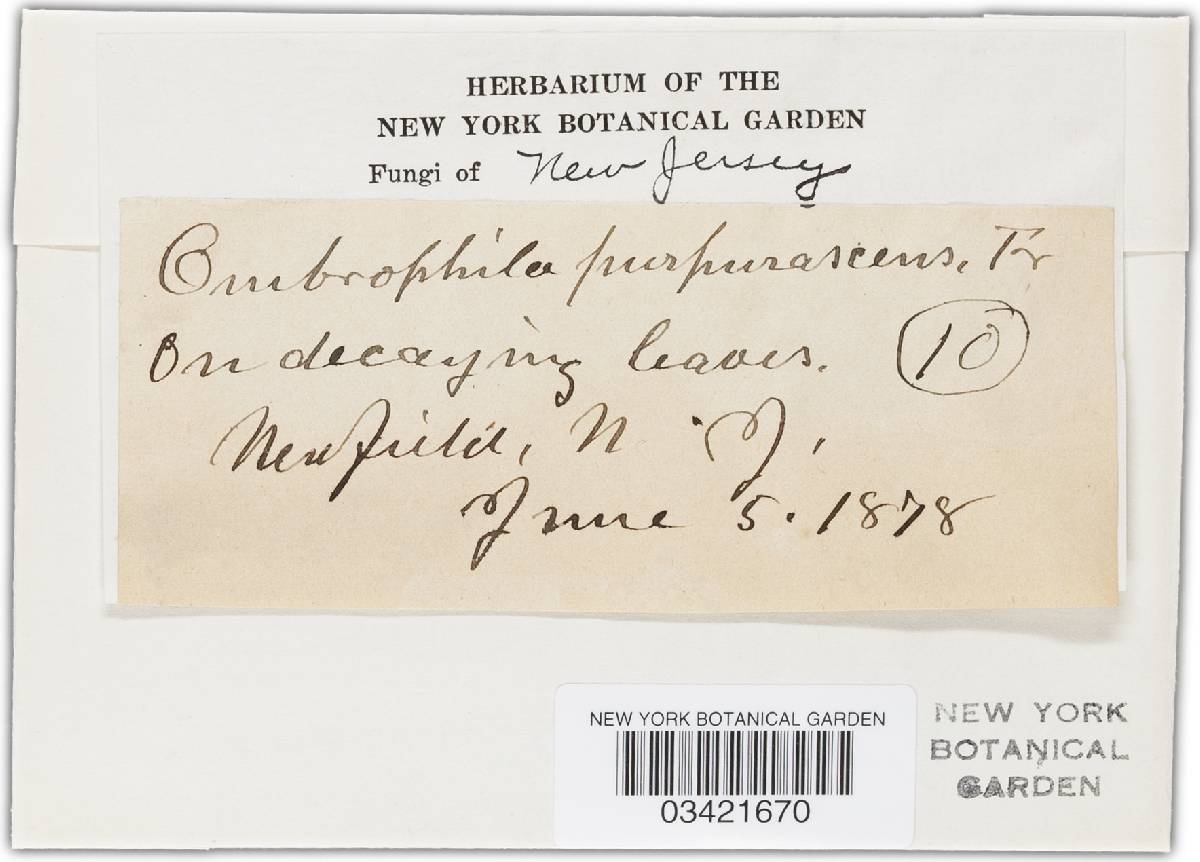 HERBARIUM OF THE
NEW YORK BOTANICAL GARDEN
Fungi of New Jersey
Ombrophila purpurascens, Fr
On decaying leaves. 10
Newfield, N. J.
June 5. 1878
NEW YORK BOTANICAL GARDEN
03421670
NEW YORK
BOTANICAL
GARDEN